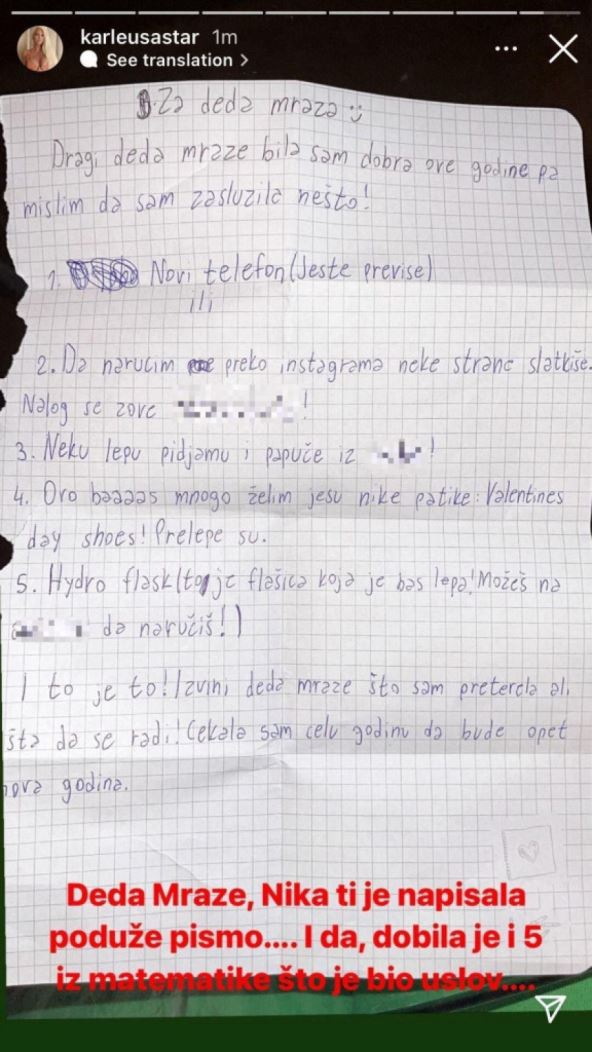 karleusastar 1m
See translation >
Za deda mraza
Dragi deda mraze bila sam dobra ove godine pa
mislim da sam zaslužila nešto!
1. Novi telefon (Jeste previse)
ili
2. Da narucim preko instagrama neke strane slatkiše.
Nalog se zove !
3. Neku lepu pidjamu i papuče iz !
4. Ovo baaaas mnogo želim jesu nike patike: Valentines
day shoes! Prelepe su.
5. Hydro flask (to je flašica koja je bas lepa! Možeš na
da naručiš!)
I to je to! Izvini deda mraze što sam preterela ali
šta da se radi! Cekala sam celu godinu da bude opet
nova godina.
Deda Mraze, Nika ti je napisala
poduže pismo.... I da, dobila je i 5
iz matematike što je bio uslov....